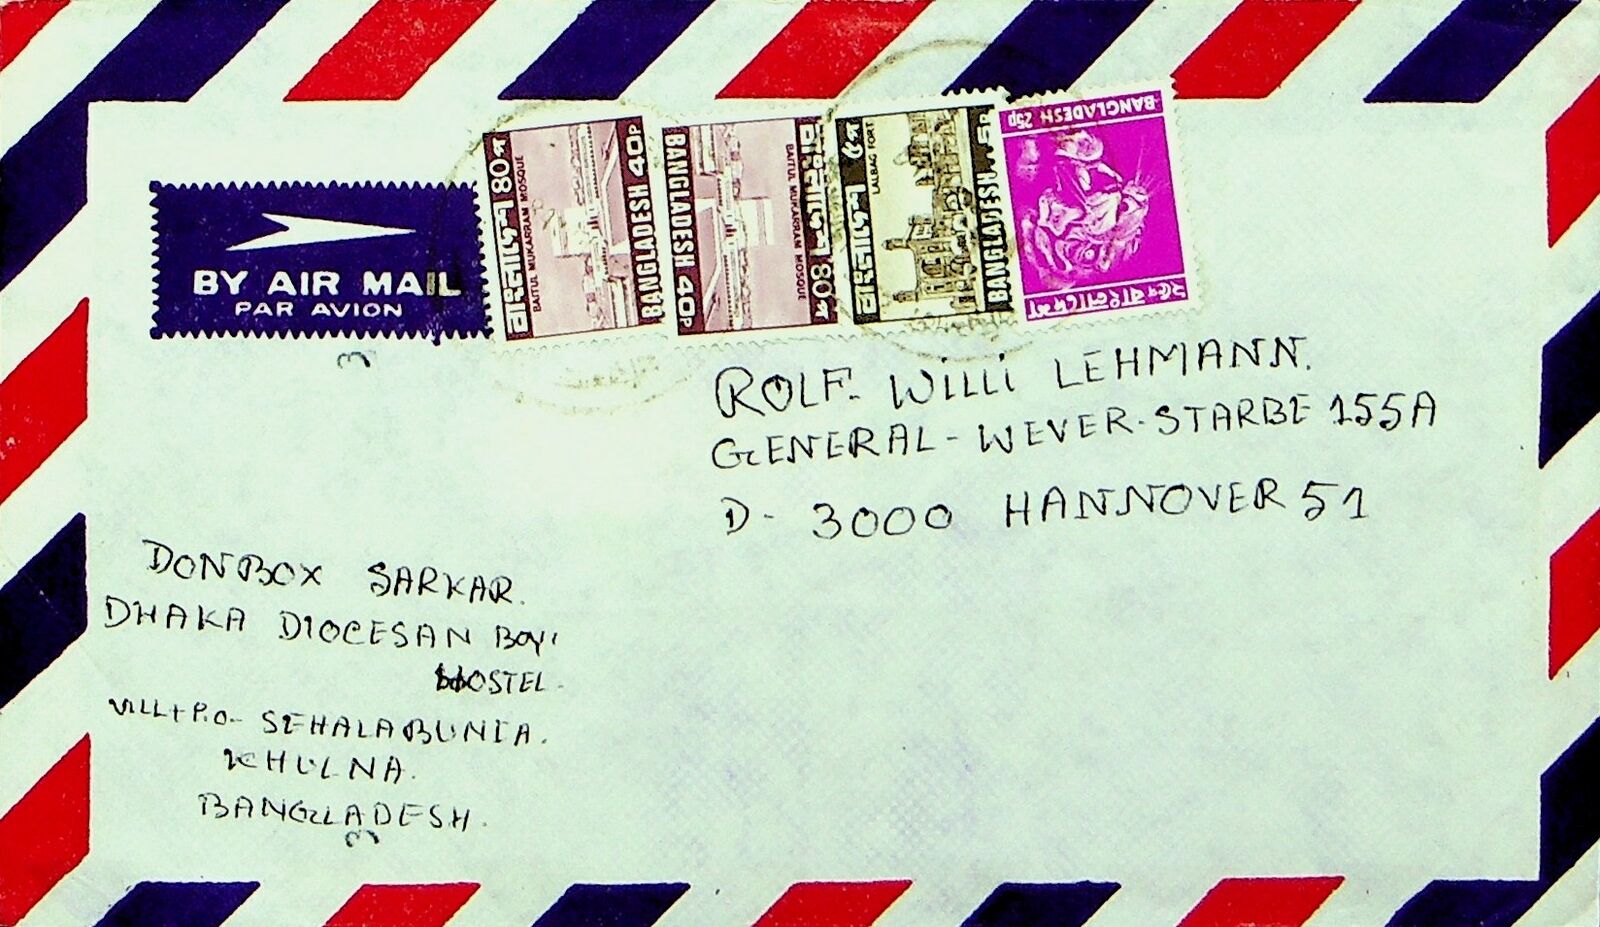 BY AIR MAIL
PAR AVION
বাংলাদেশ ৪০প
BAITUL MUKARRAM MOSQUE
BANGLADESH 40P
বাংলাদেশ ৪০প
BAITUL MUKARRAM MOSQUE
BANGLADESH 40P
বাংলাদেশ ৫প
LALBAG FORT
BANGLADESH 5P
২৫প বাংলাদেশ
BANGLADESH 25p
ROLF. WILLI LEHMANN.
GENERAL-WEVER-STARBE 155A
D- 3000 HANNOVER 51
DONBOX SARKAR.
DHAKA DIOCESAN BOY'
HOSTEL.
VILL+P.O- SEHALABUNIA.
KHULNA.
BANGLADESH.